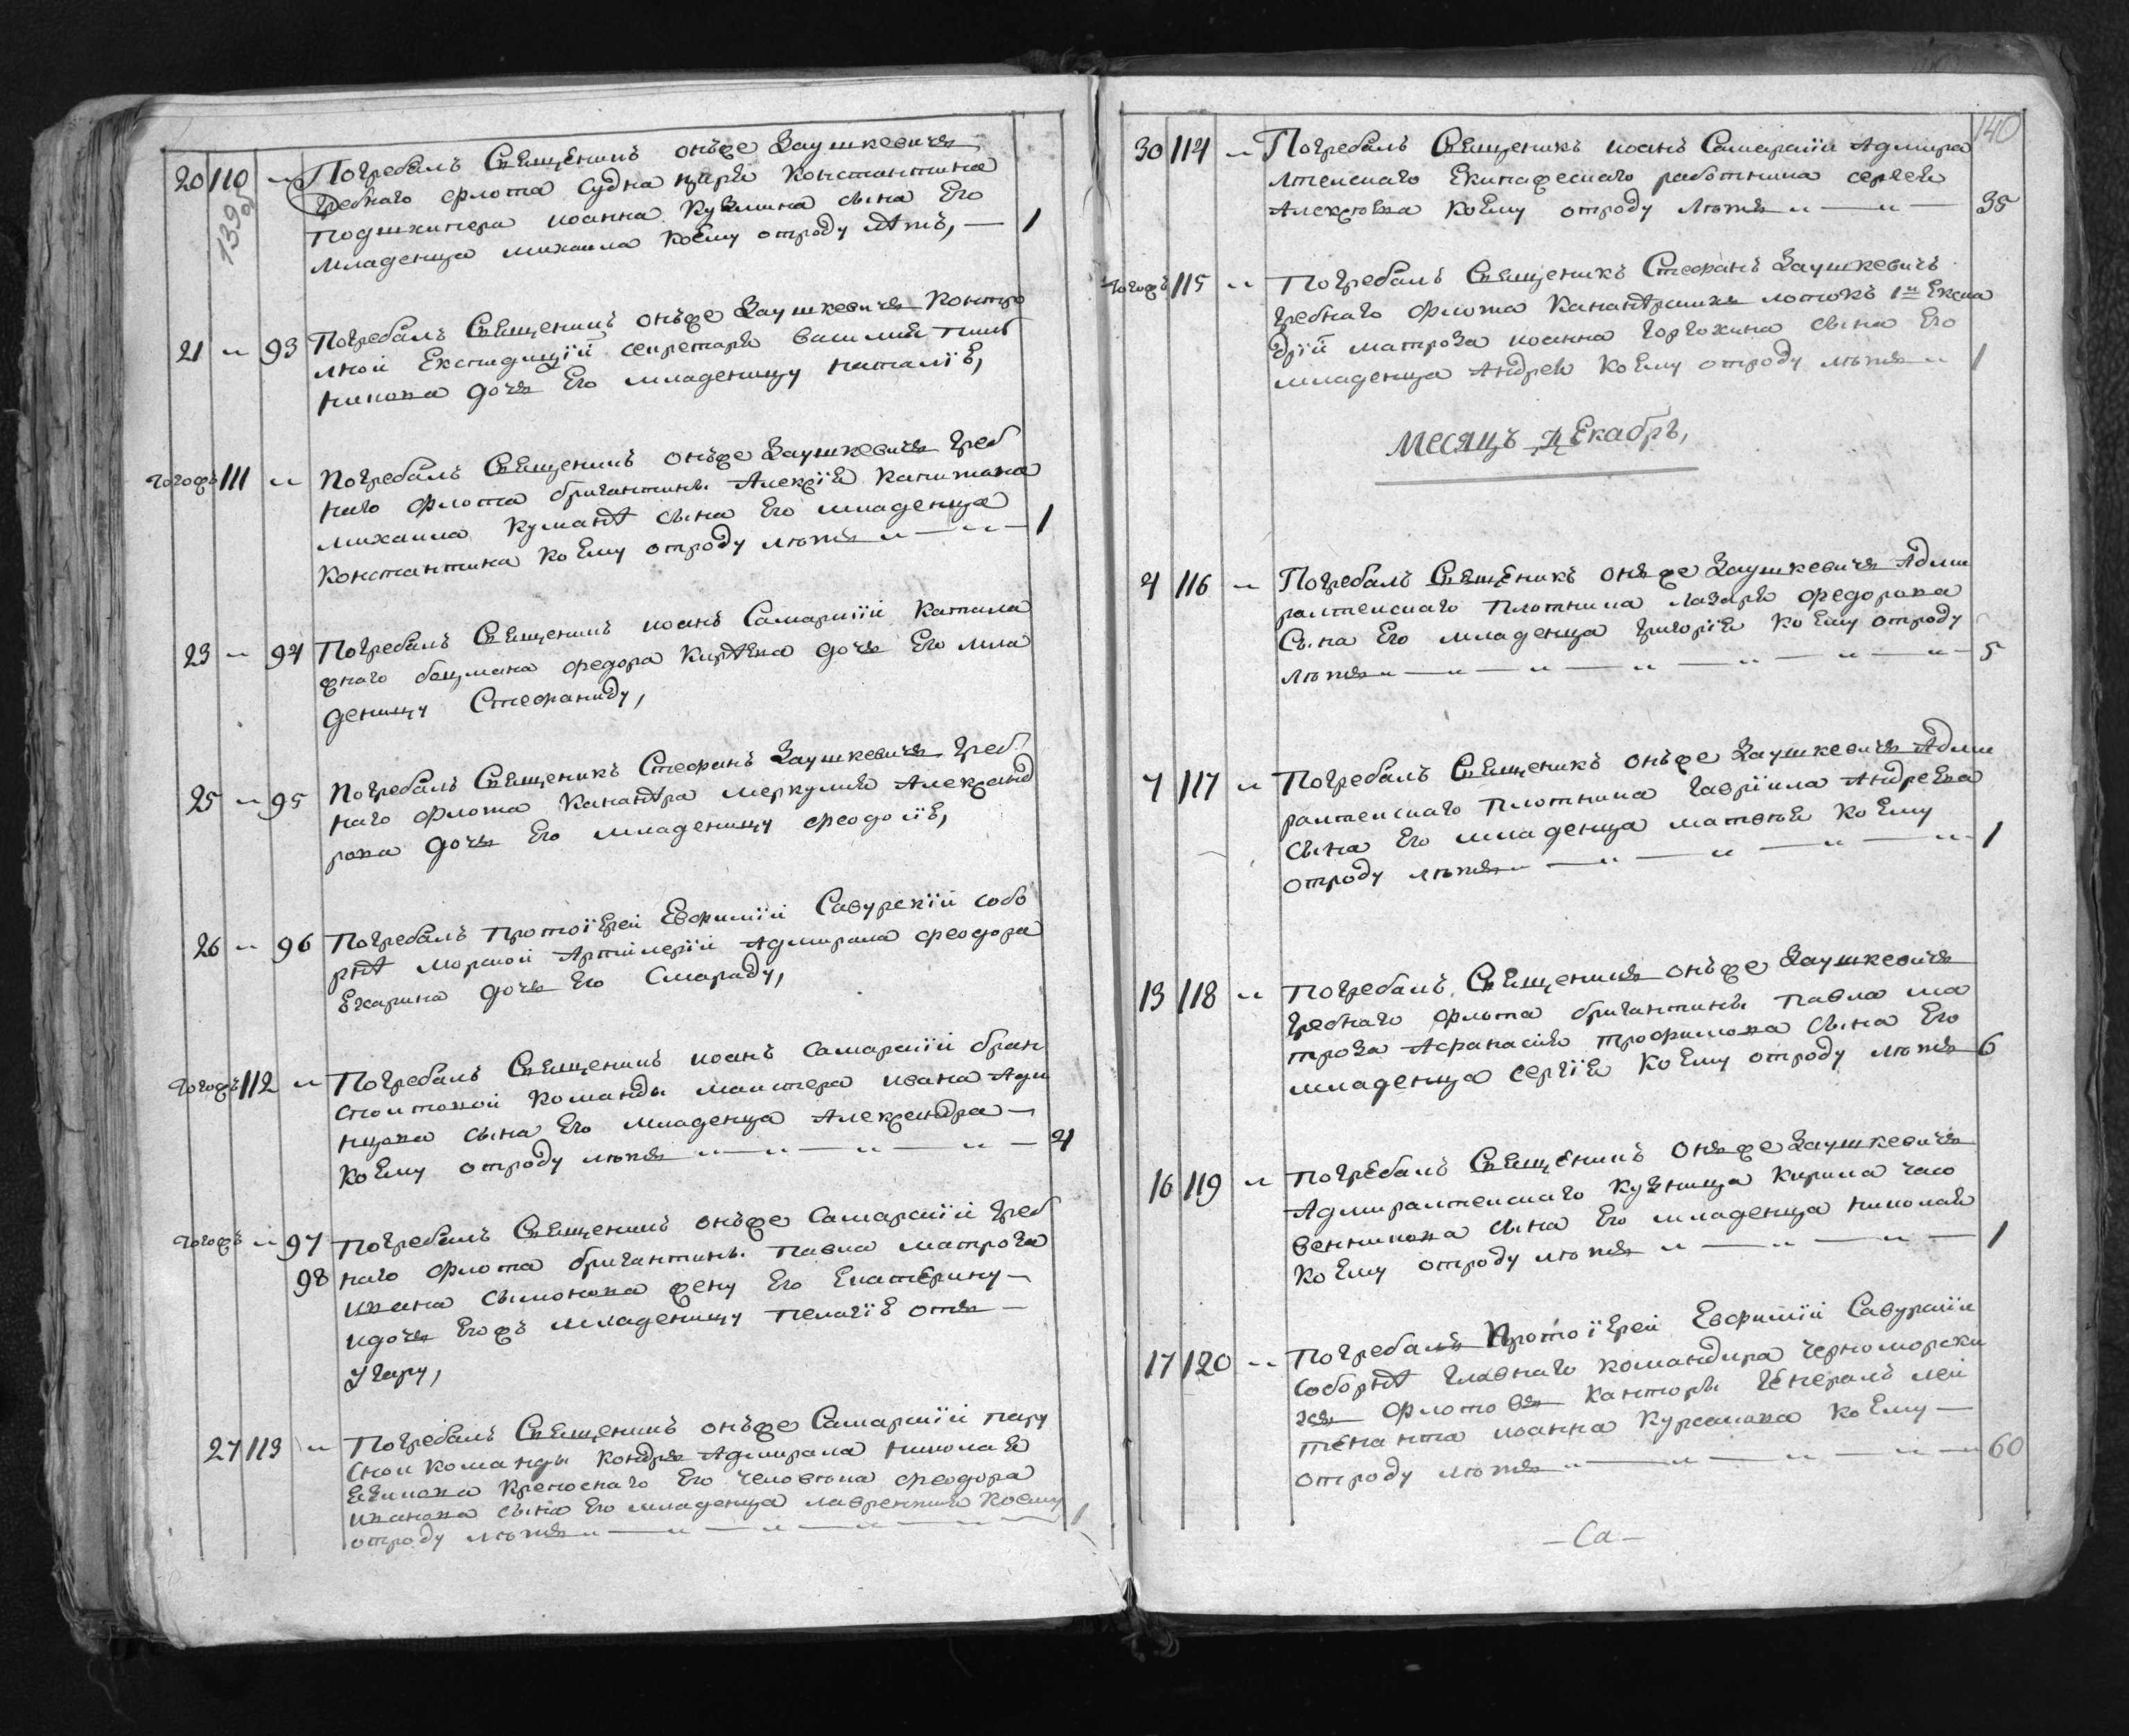 139 об
20 110 " Погребалъ Священикъ онъже Заушкевичъ
Гребнаго флота Судна царя Константина
подшхипера иоанна Кузмина сына Его
младенца михаила коему отроду лѣтъ, — 1
21 " 93 Погребалъ Священикъ онъже Заушкевичъ Контро
лной Експедиціи секретаря василия
дочь Его младеницу наталіѣ,
тогожъ 111 " Погребалъ Священикъ онъже Заушкевичъ Греб
наго флота бригантины Алексія капитана
михаила сына Его младенца
Константина коему отроду лѣтъ " — " — 1
23 " 94 Погребалъ Священикъ иоанъ Самарскій
жнаго боцмана федора дочь Его мла
деницу Стефаниду,
25 " 95 Погребалъ Священикъ Стефанъ Заушкевичъ Греб
наго флота меркулия Александ
рова дочь Его младеницу феодосіѣ,
26 " 96 Погребалъ протоіерей Евфимій Савурскій собо
рнѣ морской Артилеріи Адмирала феодора
дочь Его Смараду,
тогожъ 112 " Погребалъ Священикъ иоанъ Самарскій бран
команды ивана
сына Его младенца Александра —
коему отроду лѣтъ " — " — " — " — 4
тогожъ " 97 Погребалъ Священикъ онъже Самарскій Греб
98 наго флота бригантины павла матроза
ивана жену Его Екатерину —
идочь Егожъ младеницу пелагіѣ отъ —
Угару,
27 113 " Погребалъ Священикъ онъже Самарскій пару
сной команды контръ Адмирала николая
его человека феодора
иванова сына Его младенца лаврентия коему
отроду лѣтъ " — " — " — " — " — 1
140
30 114 " Погребалъ Священикъ иоанъ Самарскій Адмира
лтейскаго Екипажескаго работника сергея
Алексѣева коему отроду лѣтъ " — " — 35
тогожъ 115 " Погребалъ Священикъ Стефанъ Заушкевичъ
гребнаго флота
дрій матроза иоанна сына Его
младенца Андрея коему отроду лѣтъ " 1
Месяцъ Декабръ,
4 116 " Погребалъ Священикъ онъже Заушкевичъ Адми
ралтейскаго плотника лазаря федорова
Сына Его младенца григория коему отроду
лѣтъ " — " — " — " — " — " — " — 5
7 117 " Погребалъ Священикъ онъже Заушкевичъ Адми
ралтейскаго плотника гавріила Андреева
сына Его младенца матвея коему
отроду лѣтъ " — " — " — " — " — 1
13 118 " Погребалъ Священикъ онъже Заушкевичъ
Гребнаго флота бригантины павла ма
троза Афанасия трофимова сына Его
младенца сергія коему отроду лѣтъ 6
16 119 " Погребалъ Священикъ онъже Заушкевичъ
Адмиралтейскаго кузнеца кирила часо
венникова сына Его младенца николая
коему отроду лѣтъ " — " — " — 1
17 120 " Погребалъ Протоіерей Евфимій Савурскій
соборнѣ главнаго командира черноморски
хъ флотовъ канторы генералъ лей
тенанта иоанна коему —
отроду лѣтъ " — " — " — " — " 60
— Са —